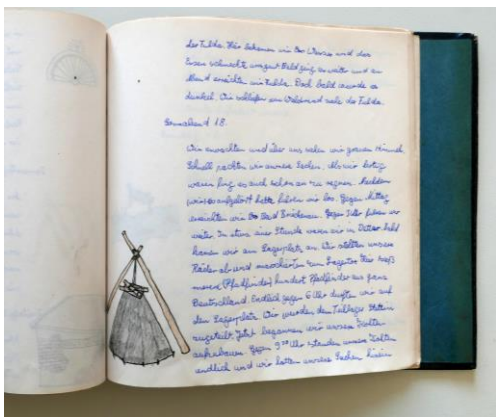 der Fulda. Hier bekamen wir
Essen schmeckte uns gut. Bald ging es weiter und am
Abend erreichten wir Fulda. Doch bald wurde es
dunkel. Wir schliefen am Waldrand nahe der Fulda.
Sonnabend 18.
Wir erwachten und über uns sahen wir grauen Himmel.
Schnell packten wir unsere Sachen. Als wir fertig
waren fing es auch schon an zu regnen. Nachdem
aufgehört hatte fuhren wir los. Gegen Mittag
erreichten wir Bad Brückenau. Gegen Uhr fuhren wir
weiter. In etwa einer Stunde waren wir in bald
kamen wir am Lagerplatz an. Wir stellten unsere
Räder ab und marschierten zum Lagertor. Hier
(Pfadfinder) hundert Pfadfinder aus ganz
Deutschland. Endlich gegen 6 Uhr durften wir auf
den Lagerplatz. Wir wurden dem Teillager
zugeteilt. Jetzt begannen wir unsere Zelte
aufzubauen. Gegen 9 Uhr standen unsere
endlich und wir hatten unsere Sachen hinein